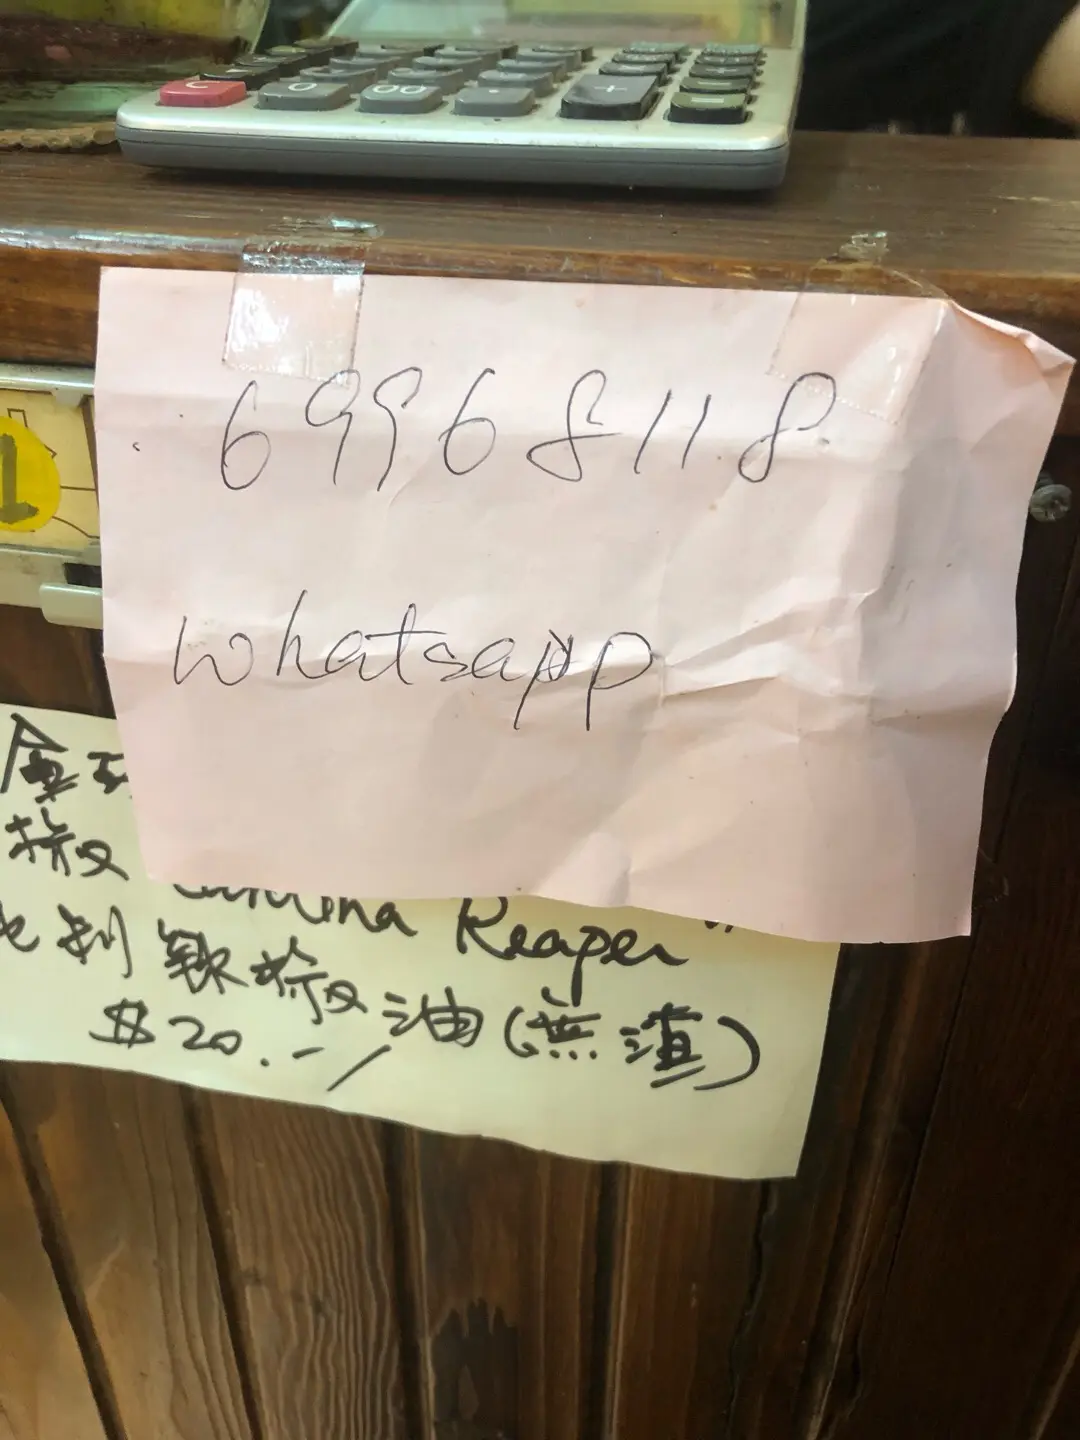 C 0 00 . + =
69968118
whatsapp
1
金
椒
Carolina Reaper"
利 辣椒油(無渣)
$20.-/